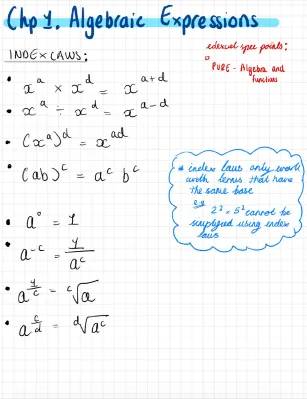 Chp 1. Algebraic Expressions
edexcel spec points:
PURE - Algebra and
functions
INDEX LAWS:
• x^a × x^d = x^(a+d)
• x^a ÷ x^d = x^(a-d)
• (x^a)^d = x^(ad)
• (ab)^c = a^c b^c
* index laws only work
with terms that have
the same base
e.g.
cannot be
simplified using index
laws
• a^0 = 1
• a^(-c) = 1/a^c
• a^(1/c) = ᶜ√a
• a^(c/d) = ᵈ√(a^c)